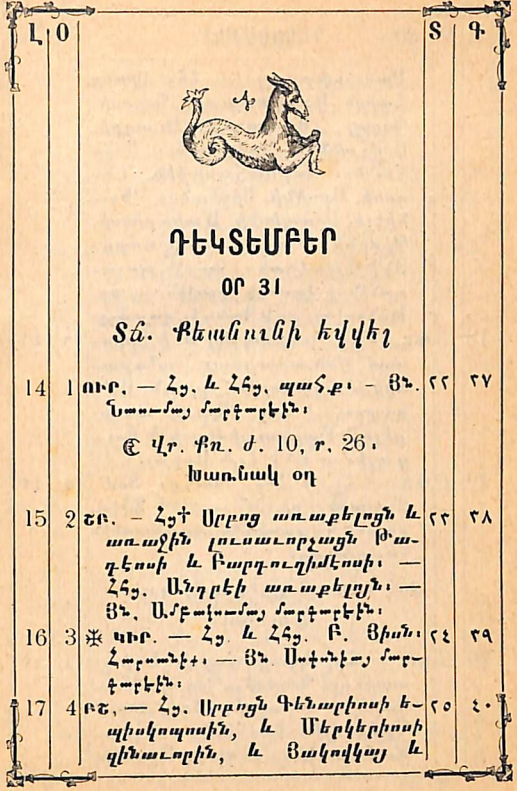 Լ Օ Տ Գ
ԴԵԿՏԵՄԲԵՐ
ՕՐ 31
Տճ. Քեանունի եվվել
14 1 ՈՒՐ. — Հց. և ՀՀց. պահք։ – Յն. ٢٢ ٣٧
Նաումայ մարգարէին։
☾ Վր. Քռ. ժ. 10, ր, 26։
Խառնակ օդ
15 2 ՇԲ. – Հց✝ Սրբոց առաքելոցն և ٢٣ ٣٨
առաջին լուսաւորչացն Թա-
դէոսի և Բարդուղիմէոսի։ —
ՀՀց. Անդրէի առաքելոյն։ —
Յն. Ամբակումայ մարգարէին։
16 3 ✠ ԿԻՐ. — Հց. և ՀՀց. Բ. Յիսն։ ٢٤ ٣٩
Հարսանիք։ — Յն. Սոփոնիայ մար-
գարէին։
17 4 ԲՇ. — Հց. Սրբոցն Գենարիոսի ե- ٢٥ ٤٠
պիսկոպոսին, և Մերկերիոսի
զինաւորին, և Յակովկայ և